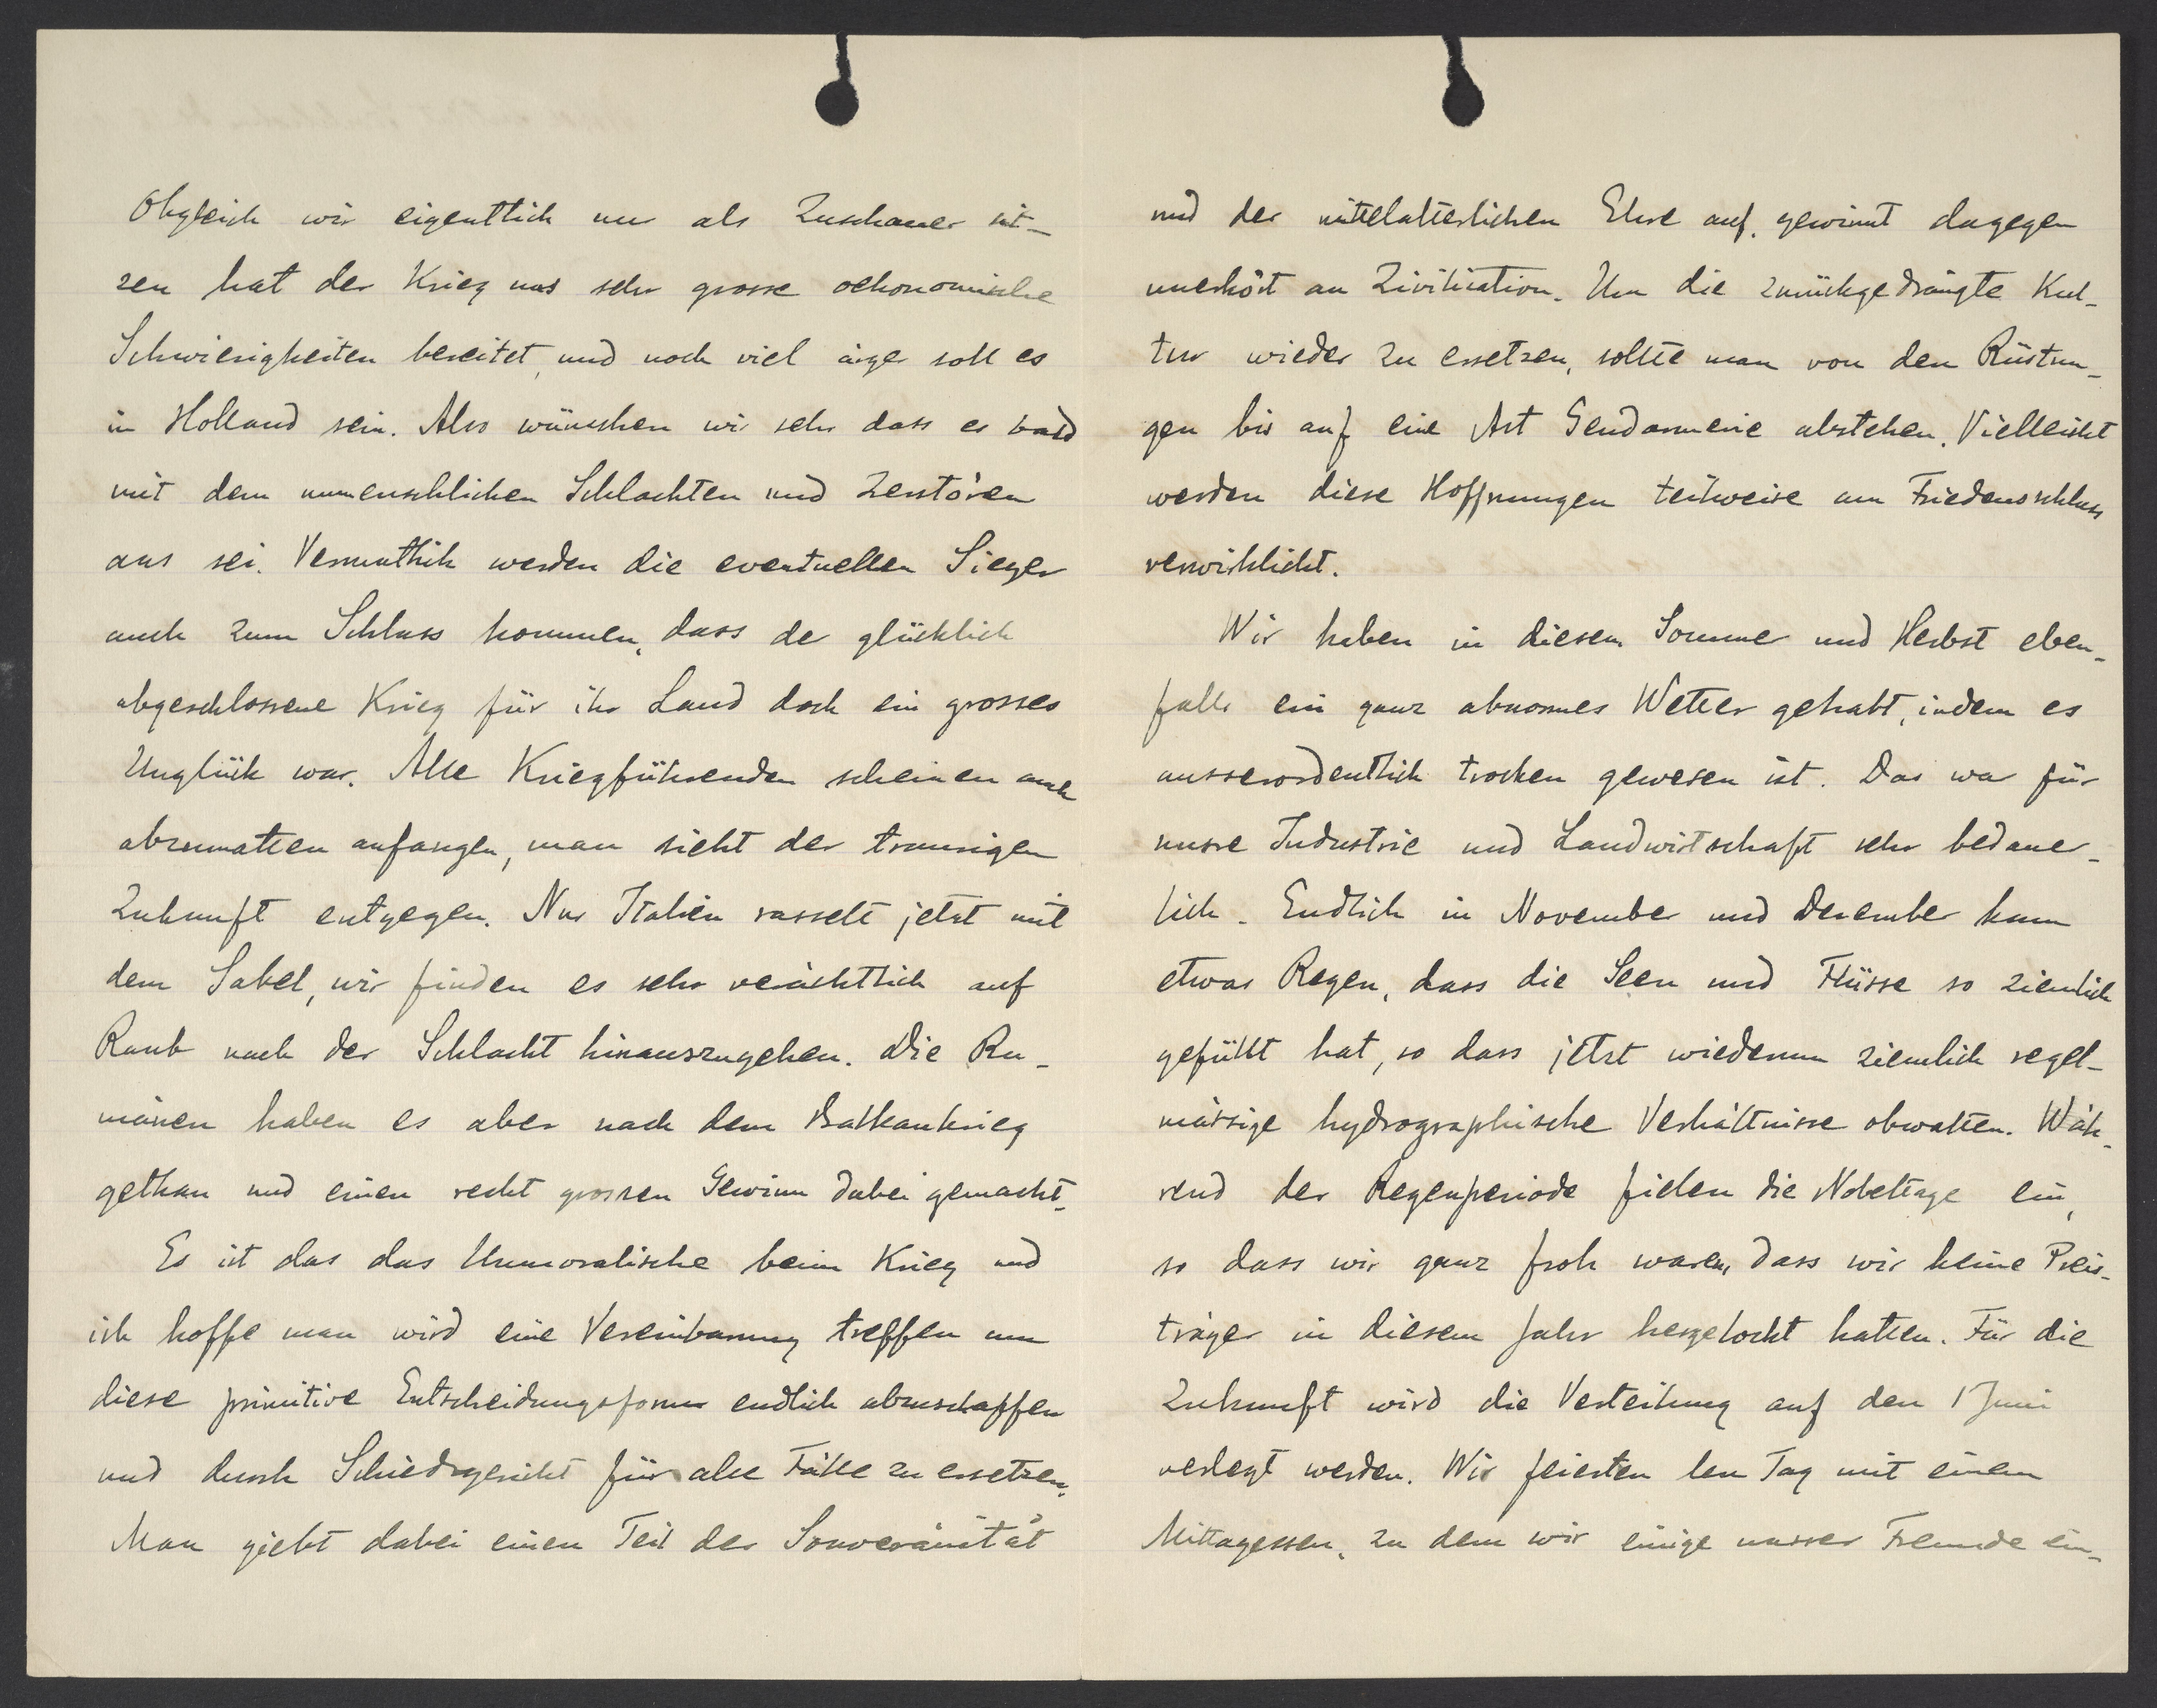 Obgleich wir eigentlich nur als Zuschauer sit-
zen hat der Krieg uns sehr grosse oekonomische
Schwierigkeiten bereitet, und noch viel ärger soll es
in Holland sein. Also wünschen wir sehr dass es bald
mit dem unmenschlichen Schlachten und Zerstören
aus sei. Vermuthlich werden die eventuellen Sieger
auch zum Schluss kommen, dass der glücklich
abgeschlossene Krieg für ihr Land doch ein grosses
Unglück war. Alle Kriegführenden scheinen auch
abzumatten anfangen, man sieht der traurigen
Zukunft entgegen. Nur Italien rasselt jetzt mit
dem Sabel, wir finden es sehr verächtlich auf
Raub nach der Schlacht hinauszugehen. Die Ru-
mänen haben es aber nach dem Balkankrieg
gethan und einen recht grossen Gewinn dabei gemacht.
Es ist das das Unmoralische beim Krieg und
ich hoffe man wird eine Vereinbarung treffen um
diese primitive Entscheidungsform endlich abzuschaffen
und durch Schiedsgericht für alle Fälle zu ersetzen.
Man giebt dabei einen Teil der Souveränität
und der mittelalterlichen Ehre auf, gewinnt dagegen
unerhört an Zivilisation. Um die zurückgedrängte Kul-
tur wieder zu ersetzen, sollte man von den Rüstun-
gen bis auf eine Art Gendarmerie abstehen. Vielleicht
werden diese Hoffnungen teilweise am Friedensschluss
verwirklicht.
Wir haben in diesem Sommer und Herbst eben-
falls ein ganz abnormes Wetter gehabt, indem es
ausserordentlich trocken gewesen ist. Das war für
unsre Industrie und Landwirtschaft sehr bedauer-
lich. Endlich in November und Dezember kam
etwas Regen, dass die Seen und Flüsse so ziemlich
gefüllt hat, so dass jetzt wiederum ziemlich regel-
mässige hydrographische Verhältnisse obwalten. Wäh-
rend der Regenperiode fielen die Nobeltage ein,
so dass wir ganz froh waren, dass wir keine Preis-
träger in diesem Jahr hergelockt hatten. Für die
Zukunft wird die Verteilung auf den 1 Juni
verlegt werden. Wir feierten den Tag mit einem
Mittagessen, zu dem wir einige unsrer Freunde ein-